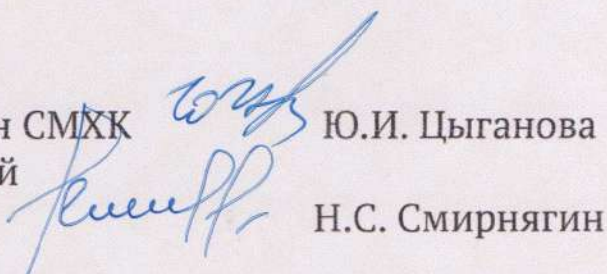 н СМХК Ю.И. Цыганова
й
Н.С. Смирнягин